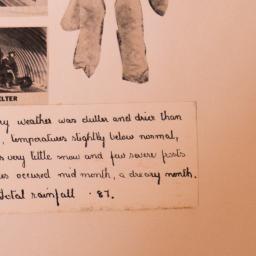 ELTER
ry weather was duller and drier than
, temperatures slightly below normal,
s very little snow and few severe frosts
es occured mid month, a dreary month.
Total rainfall · 87.